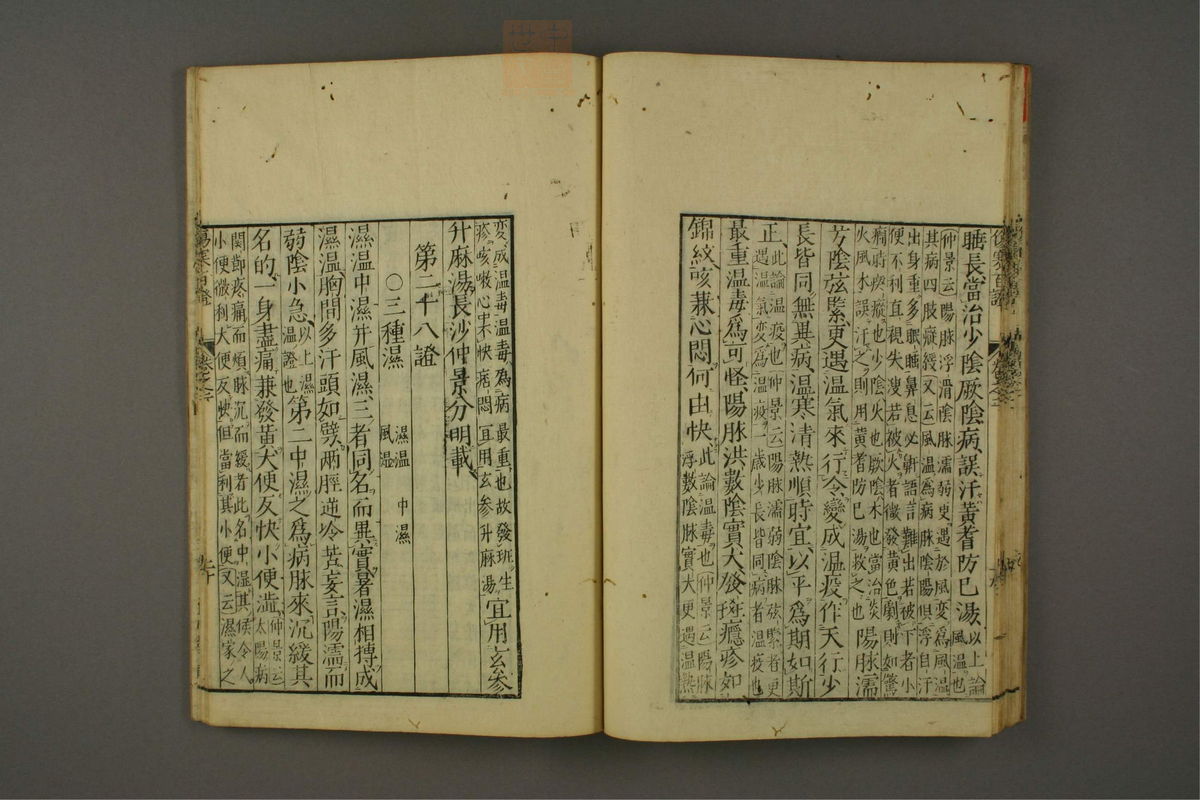 睡長當治少陰厥陰病誤汗黃耆防已湯以上論風温也
仲景云陽脉浮滑陰脉濡弱更遇於風變爲風温
其病四肢緩又云風温爲病脉陰陽俱浮自汗
出身重多眠睡鼻息必鼾語言難出若被下者小
便不利直視失溲若被火者微發黃色劇則如驚
癎時瘈瘲也少陰火也厥陰木也當治
火風木誤汗之則用黃耆防已湯救之也陽脉濡
芳陰弦緊更遇温氣來行令變成温疫作天行少
長皆同無異病温寒清熱順時宜以平爲期如斯
正此論温疫也仲景云陽脉濡弱陰脉弦緊者更遇温氣變爲温疫一歲少長皆同病者温疫也
最重温毒爲可怪陽脉洪數陰實大發斑癮疹如
錦紋咳兼心悶何由快此論温毒也仲景云陽脉浮數陰脉實大更遇温熱
變成温毒温毒爲病最重也故發班生疹咳嗽心未快痞悶宜用玄參升麻湯宜用玄參
升麻湯長沙仲景分明載
第二十八證
○三種濕 濕温 中濕 風濕
濕温中濕并風濕三者同名而異實暑濕相搏成
濕温胸間多汗頭如劈兩脛逆冷苦妄言陽濡而
弱陰小急以上濕温證也第二中濕之爲病脉來沉緩其
名的一身盡痛兼發黃大便反快小便澁仲景云太陽病
關節疼痛而煩脉沉而緩者此名中濕其候令人
小便微利大便反快但當利其小便又云濕家之